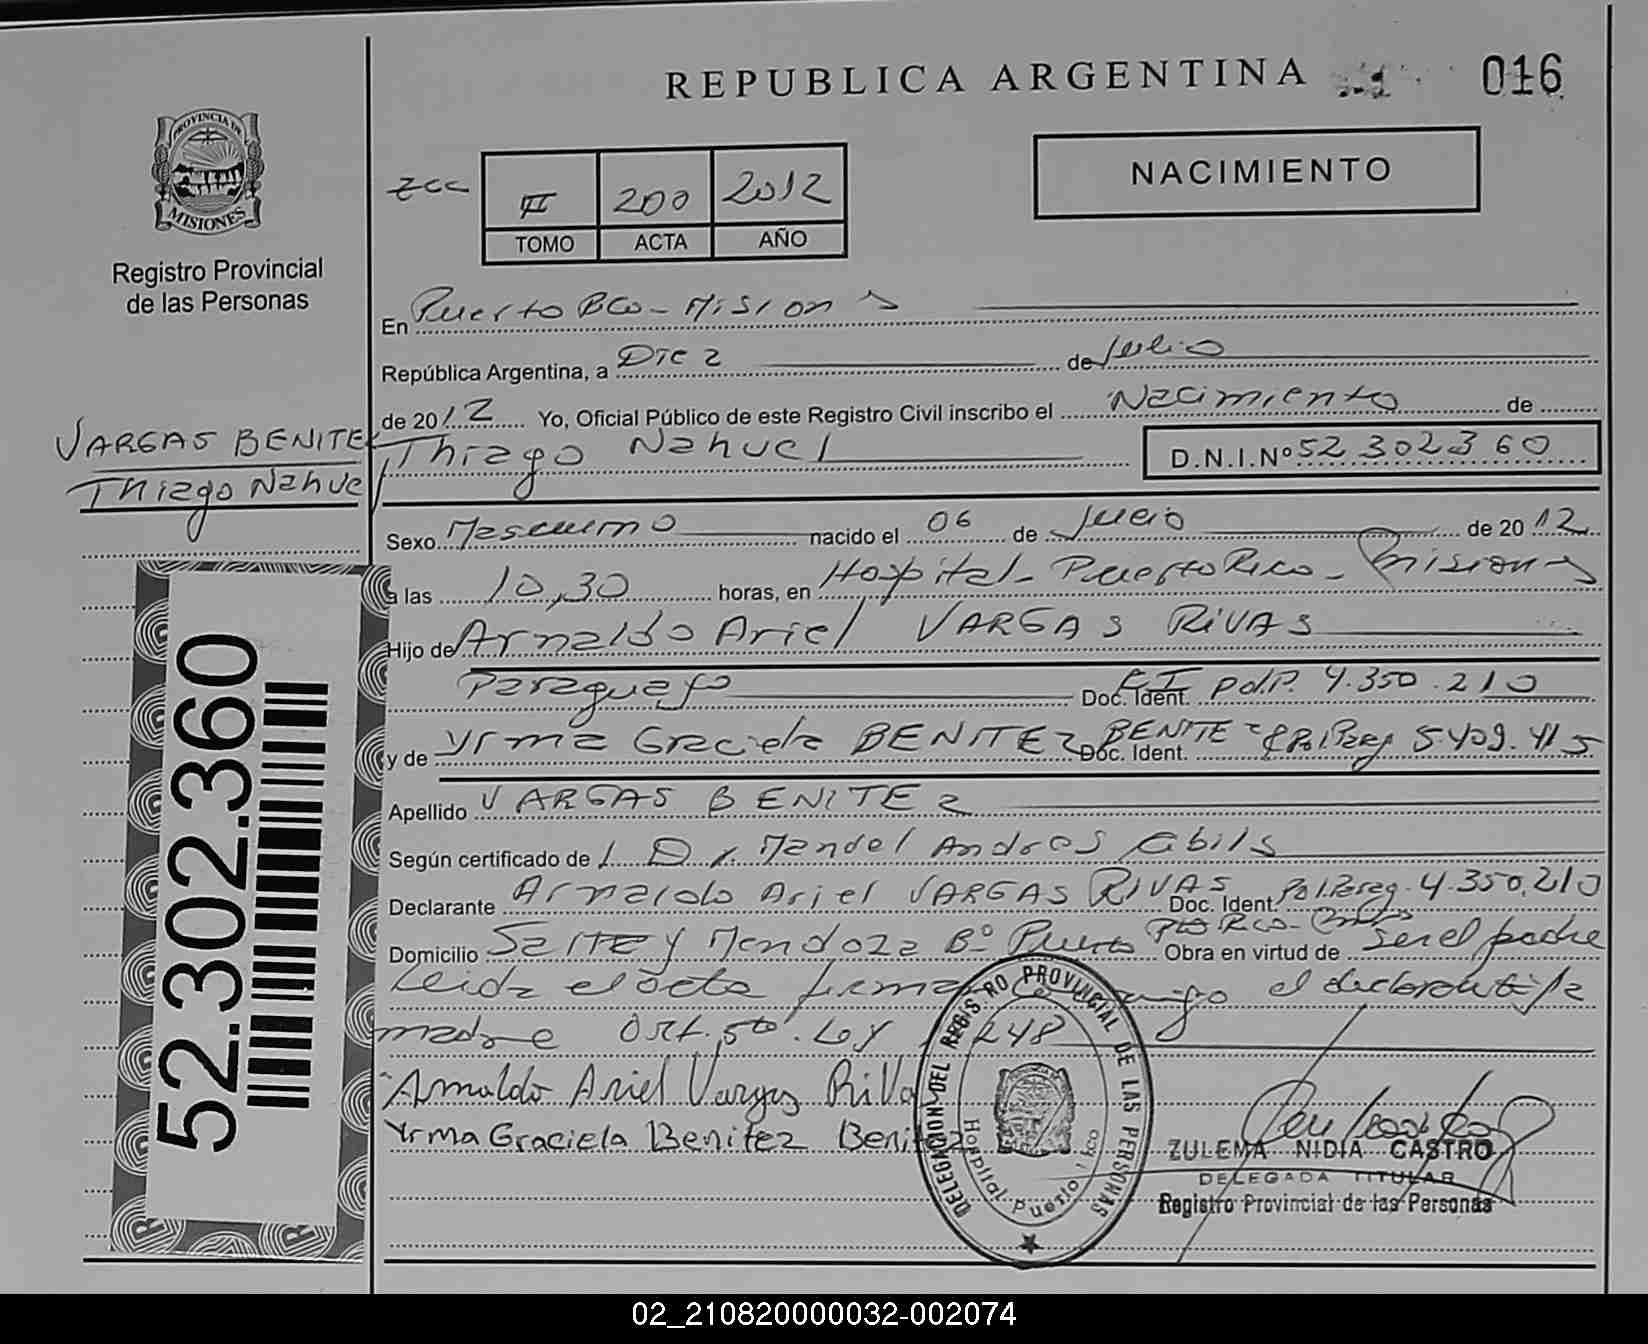 REPUBLICA ARGENTINA
016
PROVINCIA DE
MISIONES
Registro Provincial
de las Personas
NACIMIENTO
II 200 2012
TOMO ACTA AÑO
En Puerto Rico - Misiones
República Argentina, a Diez de Julio
de 2012 Yo, Oficial Público de este Registro Civil inscribo el Nacimiento de
VARGAS BENITEZ
Thiago Nahuel
Thiago Nahuel
D.N.I.Nº 52 302 360
Sexo Masculino nacido el 06 de Julio de 2012
a las 10,30 horas, en Hospital - Puerto Rico - Misiones
Hijo de Arnaldo Ariel VARGAS RIVAS
Paraguayo Doc. Ident. C.I. Pol.P. 4.350.210
y de Yrma Graciela BENITEZ BENITEZ Doc. Ident. Pol.Parag 5.409.415
Apellido VARGAS BENITEZ
Según certificado de Dr. Manuel Andres Abils
Declarante Arnaldo Ariel VARGAS RIVAS Doc. Ident. Pol.Parag. 4.350.210
Domicilio SAITE y Mendoza Bº Puerto Pto Rico - Obra en virtud de ser el padre
Leida el acta firma conmigo el declarante y la
madre Art. 5to. Ley 248
Arnaldo Ariel Vargas Riva
Yrma Graciela Benitez Benitez
DELEGACION DEL REGISTRO PROVINCIAL DE LAS PERSONAS
Hospital Puerto Rico
ZULEMA NIDIA CASTRO
DELEGADA TITULAR
Registro Provincial de las Personas
52.302.360
02_210820000032-002074